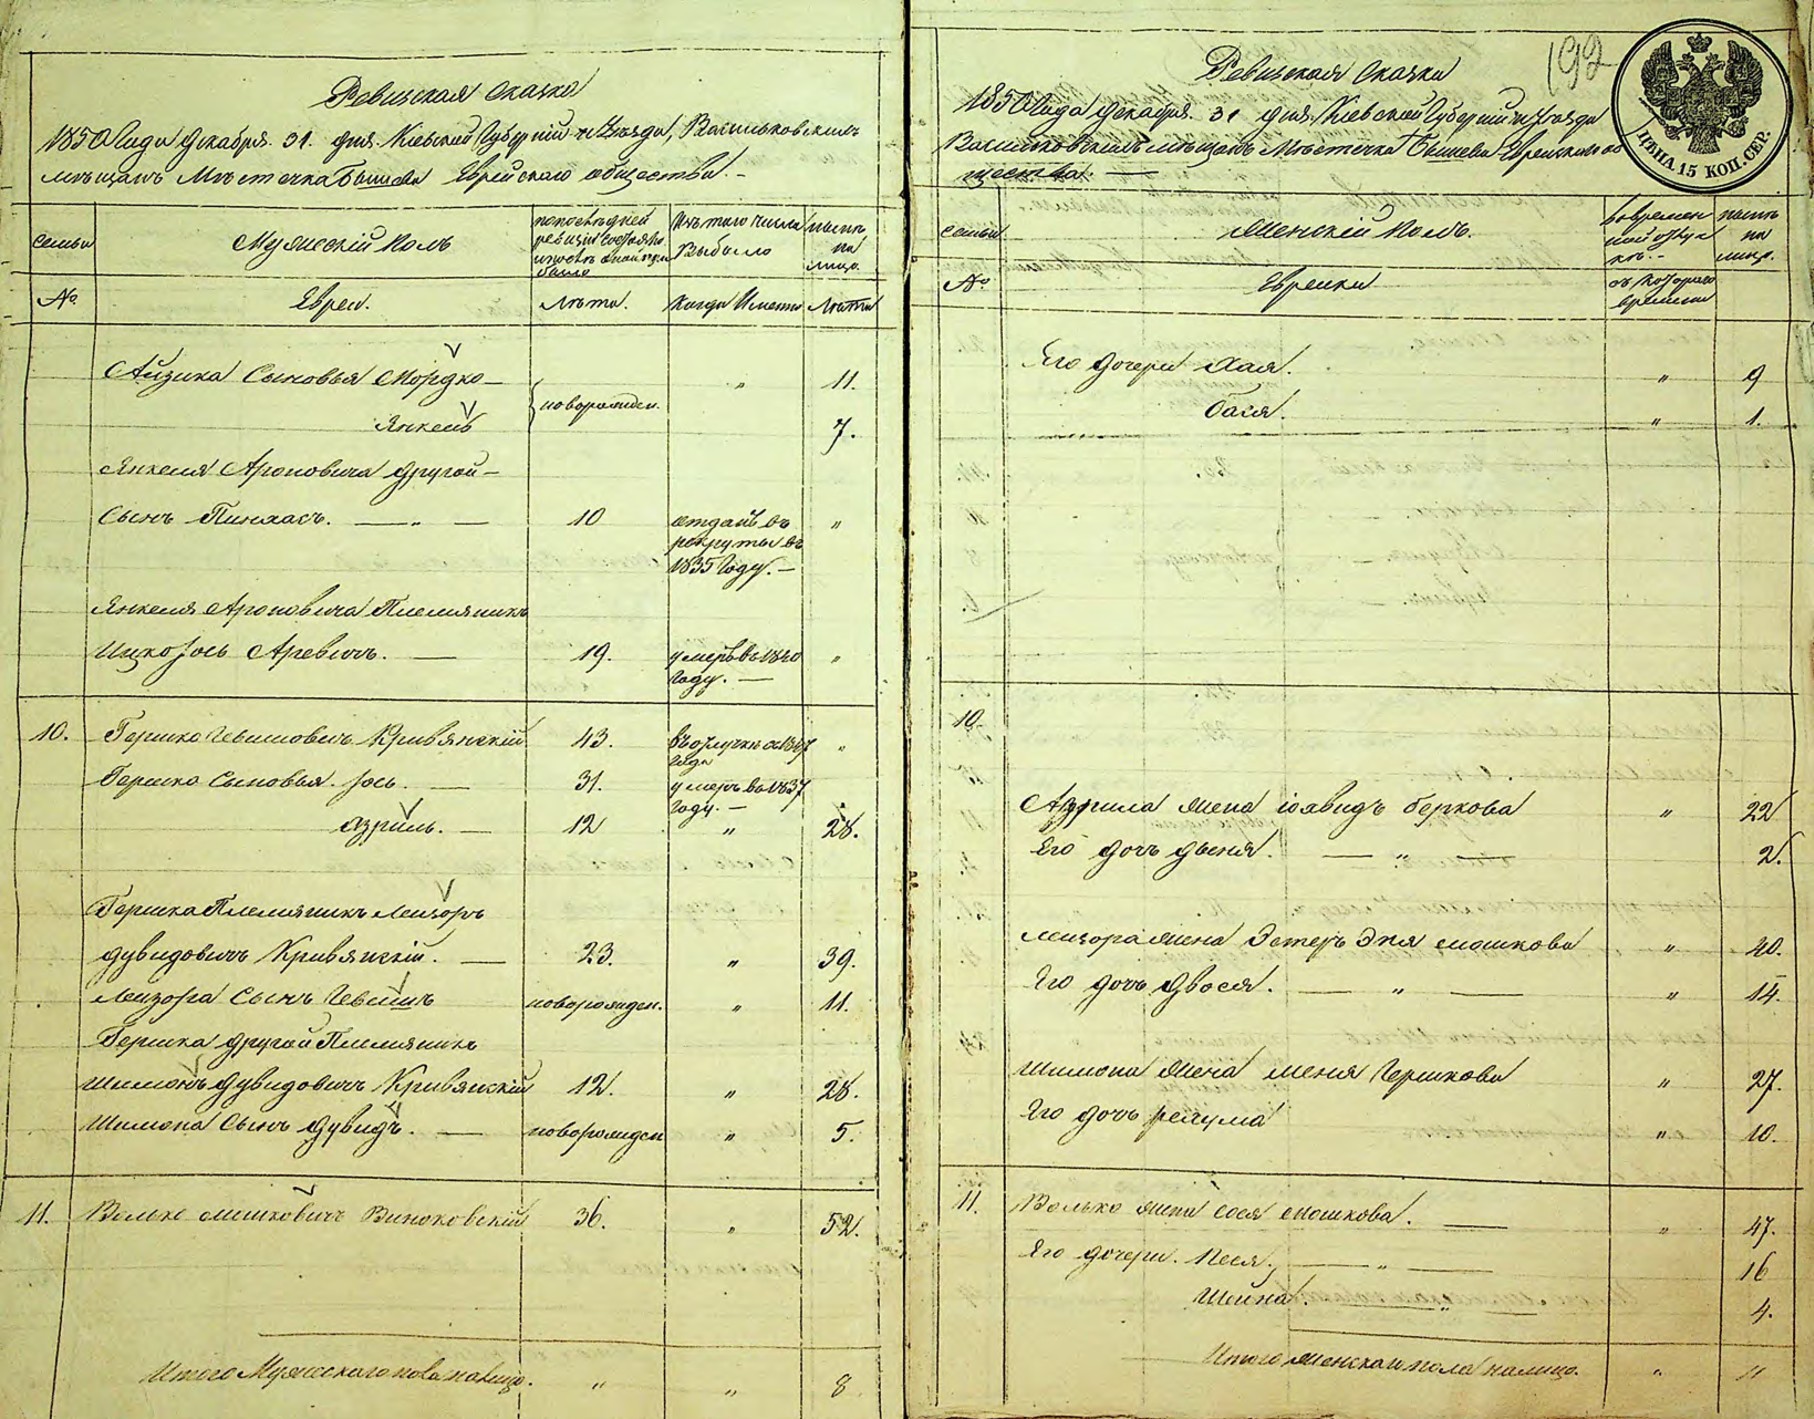 Ревизская Сказка
1850 Года Декабря 31 дня Кіевской Губерніи и Уезда, Васильковскихъ
мѣщанъ Мѣстечка Бышева Еврейскаго общества.
семьи
Мужескій Полъ
по последней
ревизіи состояло
было
Изъ того числа
Выбыло
нынѣ
на
лицо.
№
Евреи.
Лѣта.
Когда Именно
Лѣта
Айзика Сыновья Мордко —
новорожден.
"
11.
Янкель
7.
Янкеля Ароновича другой —
Сынъ Пинхасъ. — " —
10
отданъ въ
рекруты въ
1835 Году. —
"
Янкеля Ароновича Племяникъ
Ицко Іось Аревичъ. —
19.
умеръ въ 1840
Году. —
"
10.
Гершко Невахович Кривянскій
43.
въ отлучкѣ съ 1847
Года
"
Гершко Сыновья. Іось. —
31.
умеръ въ 1837
Году. —
Азриль. —
12
"
28.
Гершка Племяникъ Лейзоръ
Дувидовичъ Кривянскій. —
23.
"
39.
Лейзора Сынъ
новорожден.
"
11.
Гершка другой Племяникъ
Шимонъ Дувидовичъ Кривянскій
12.
"
28.
Шимона Сынъ Дувидъ. —
новорожден
"
5.
11.
Волько Мошковичъ Виноковскій
36.
"
52.
Итого Мужескаго пола налицо.
"
"
8
192
Ревизская Сказка
1850 Года Декабря 31 дня Кіевской Губерніи и Уезда
Васильковскихъ мѣщанъ Мѣстечка Бышева Еврейскаго об
щества. —
ЦѢНА 15 КОП. СЕР.
семьи
Женскій Полъ.
во времен
ной отлуч
кѣ. -
нынѣ
на
лицо.
№
Еврейки
съ котораго
времени
Его дочери Хая.
"
9
Бася.
"
1.
10.
Азрила жена Беркова
"
22
Его дочь Дыня. — " —
2.
Лейзора жена Эстеръ Эня Мошкова
"
40.
Его дочь Двося. — " —
"
14.
Шимона жена Меня Гершкова
"
27.
Его дочь
"
10.
11.
Волько жена Сося Мошкова. —
"
47.
Его дочери. Песя. — " —
16
Шейна. "
4.
Итого женскаго пола налицо.
"
11